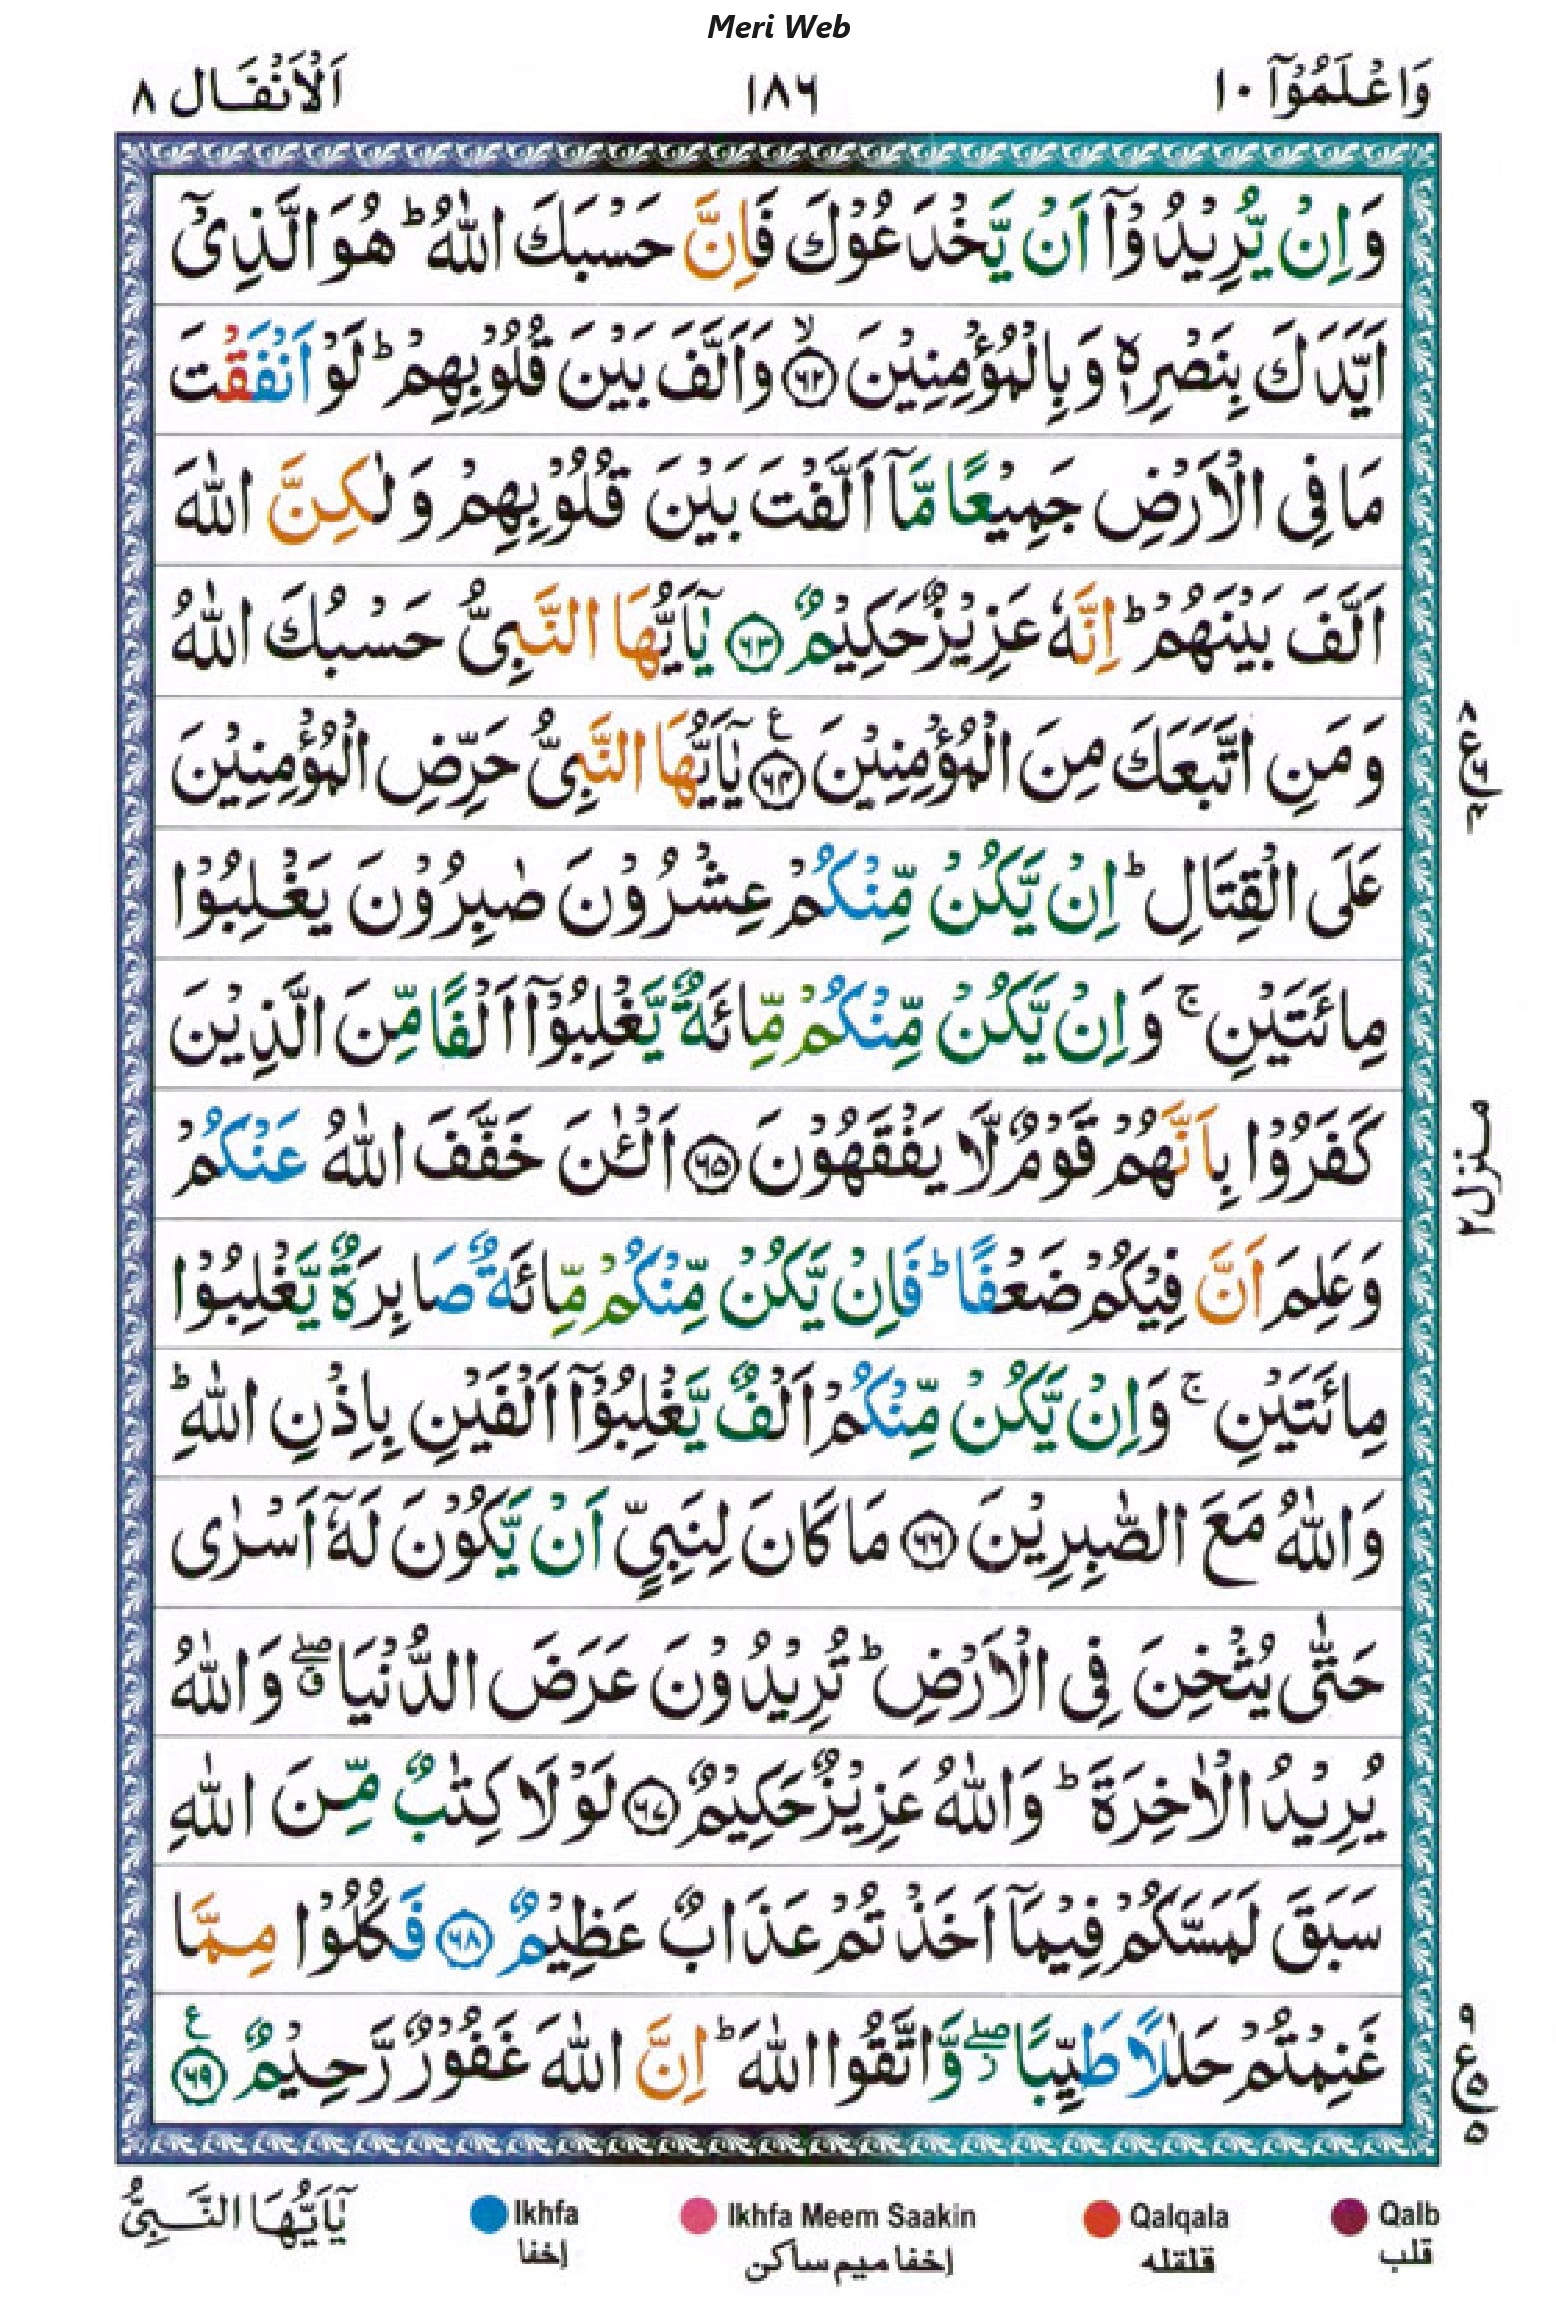 Meri Web
وَاعْلَمُوْٓا ١٠
١٨٦
اَلْاَنْفَال ٨
وَاِنْ يُّرِيْدُوْٓا اَنْ يَّخْدَعُوْكَ فَاِنَّ حَسْبَكَ اللّٰهُ ؕ هُوَ الَّذِىْٓ
اَيَّدَكَ بِنَصْرِهٖ وَبِالْمُؤْمِنِيْنَ ۙ‏﴿۶۲﴾ وَاَلَّفَ بَيْنَ قُلُوْبِهِمْ ؕ لَوْ اَنْفَقْتَ
مَا فِى الْاَرْضِ جَمِيْعًا مَّاۤ اَلَّفْتَ بَيْنَ قُلُوْبِهِمْ وَلٰكِنَّ اللّٰهَ
اَلَّفَ بَيْنَهُمْ ؕ اِنَّهٗ عَزِيْزٌ حَكِيْمٌ ﴿۶۳﴾ يٰۤاَيُّهَا النَّبِىُّ حَسْبُكَ اللّٰهُ
وَمَنِ اتَّبَعَكَ مِنَ الْمُؤْمِنِيْنَ ﴿۶۴﴾ ع يٰۤاَيُّهَا النَّبِىُّ حَرِّضِ الْمُؤْمِنِيْنَ
عَلَى الْقِتَالِ ؕ اِنْ يَّكُنْ مِّنْكُمْ عِشْرُوْنَ صٰبِرُوْنَ يَغْلِبُوْا
مِائَتَيْنِ ۚ وَاِنْ يَّكُنْ مِّنْكُمْ مِّائَةٌ يَّغْلِبُوْۤا اَلْفًا مِّنَ الَّذِيْنَ
كَفَرُوْا بِاَنَّهُمْ قَوْمٌ لَّا يَفْقَهُوْنَ ﴿۶۵﴾ اَلْـٰٔنَ خَفَّفَ اللّٰهُ عَنْكُمْ
وَعَلِمَ اَنَّ فِيْكُمْ ضَعْفًا ؕ فَاِنْ يَّكُنْ مِّنْكُمْ مِّائَةٌ صَابِرَةٌ يَّغْلِبُوْا
مِائَتَيْنِ ۚ وَاِنْ يَّكُنْ مِّنْكُمْ اَلْفٌ يَّغْلِبُوْۤا اَلْفَيْنِ بِاِذْنِ اللّٰهِ ؕ
وَاللّٰهُ مَعَ الصّٰبِرِيْنَ ﴿۶۶﴾ مَا كَانَ لِنَبِىٍّ اَنْ يَّكُوْنَ لَهٗۤ اَسْرٰى
حَتّٰى يُثْخِنَ فِى الْاَرْضِ ؕ تُرِيْدُوْنَ عَرَضَ الدُّنْيَا ۖق وَاللّٰهُ
يُرِيْدُ الْاٰخِرَةَ ؕ وَاللّٰهُ عَزِيْزٌ حَكِيْمٌ ﴿۶۷﴾ لَوْلَا كِتٰبٌ مِّنَ اللّٰهِ
سَبَقَ لَمَسَّكُمْ فِيْمَاۤ اَخَذْتُمْ عَذَابٌ عَظِيْمٌ ﴿۶۸﴾ فَكُلُوْا مِمَّا
غَنِمْتُمْ حَلٰلًا طَيِّبًا ۖز وَّاتَّقُوا اللّٰهَ ؕ اِنَّ اللّٰهَ غَفُوْرٌ رَّحِيْمٌ ﴿۶۹﴾ ع
منزل ٢
يٰۤاَيُّهَا النَّبِىُّ
Ikhfa
إخفا
Ikhfa Meem Saakin
إخفا ميم ساكن
Qalqala
قلقله
Qalb
قلب